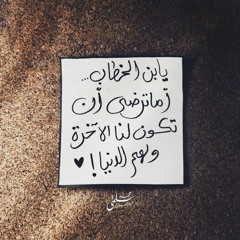 يا ابن الخطاب...
أما ترضى أن
تكون لنا الآخرة
ولهم الدنيا! ♥